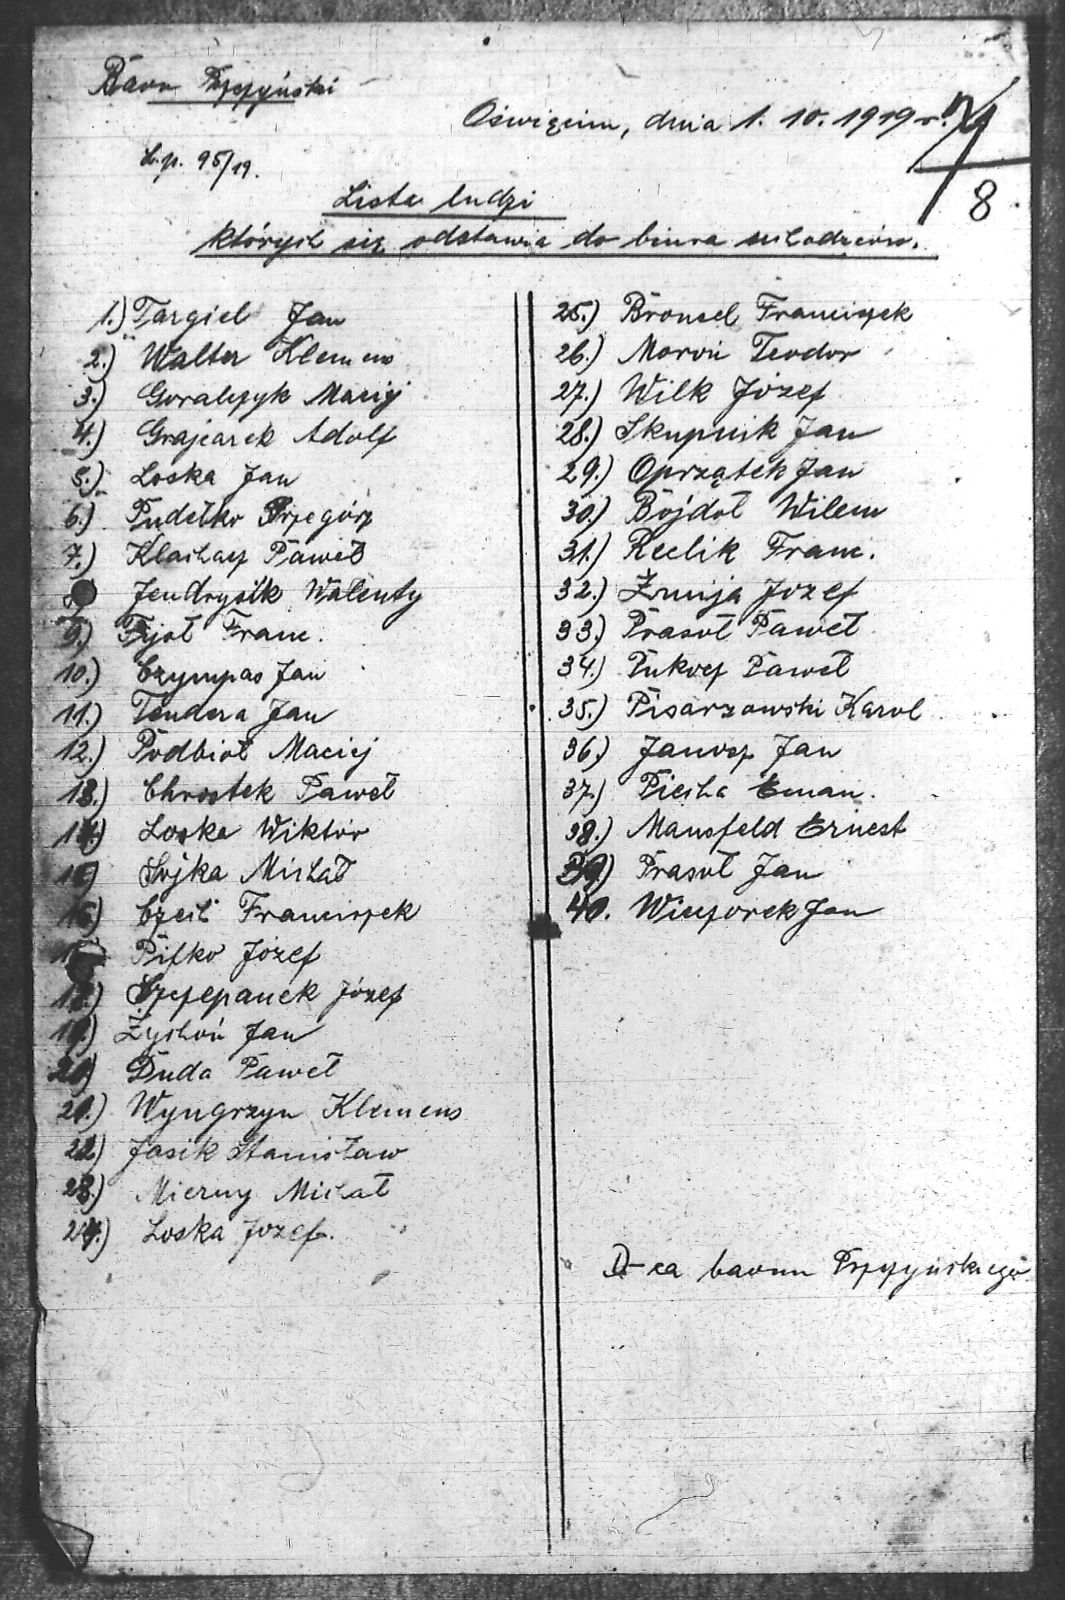 Baon Pszczyński
Oświęcim, dnia 1. 10. 1919 r.
L.p. 95/19.
8
Lista ludzi
których się odstawia do biura uchodźców.
1.) Targiel Jan
2.) Walter Klemens
3.) Goralczyk Maciej
4.) Grajcarek Adolf
5.) Loska Jan
6.) Pudełko Grzegórz
7.) Klachacz Paweł
Jendrysik Walenty
9.) Fijoł Franc.
10.) Czympas Jan
11.) Tendera Jan
12.) Podbioł Maciej
13.) Chrostek Paweł
14.) Loska Wiktor
15) Sojka Michał
16) Czeił Franciszek
Pifko Józef
18.) Szczepanek Józef
19.) Żychoń Jan
20) Duda Paweł
21.) Wyngrzyn Klemens
22.) Jasik Stanisław
23.) Mierny Michał
24.) Loska Jozef.
25.) Bronsel Franciszek
26.) Moroń Teodor
27.) Wilk Józef
28.) Skupnik Jan
29.) Oprzątek Jan
30.) Bojdoł Wilem
31.) Reclik Franc.
32.) Żmija Jozef
33.) Prasoł Paweł
34.) Pukocz Paweł
35.) Pisarzowski Karol
36.) Janosz Jan
37.) Piecha Eman.
38.) Mansfeld Ernest
39) Prasoł Jan
40. Wieczorek Jan
D-ca baonu Pszczyńskiego